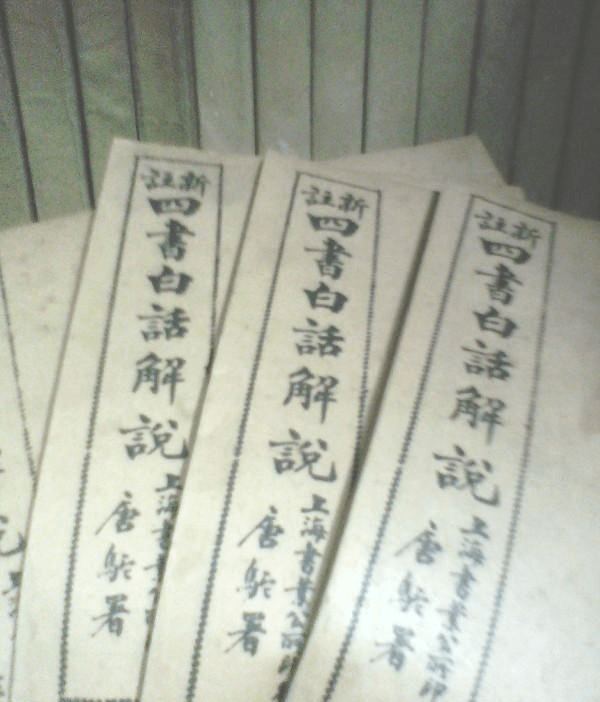 新註
四書白話解說
上海書業公所印
唐駝署
新註
四書白話解說
上海書業公所印
唐駝署
新註
四書白話解說
上海書業
唐駝署